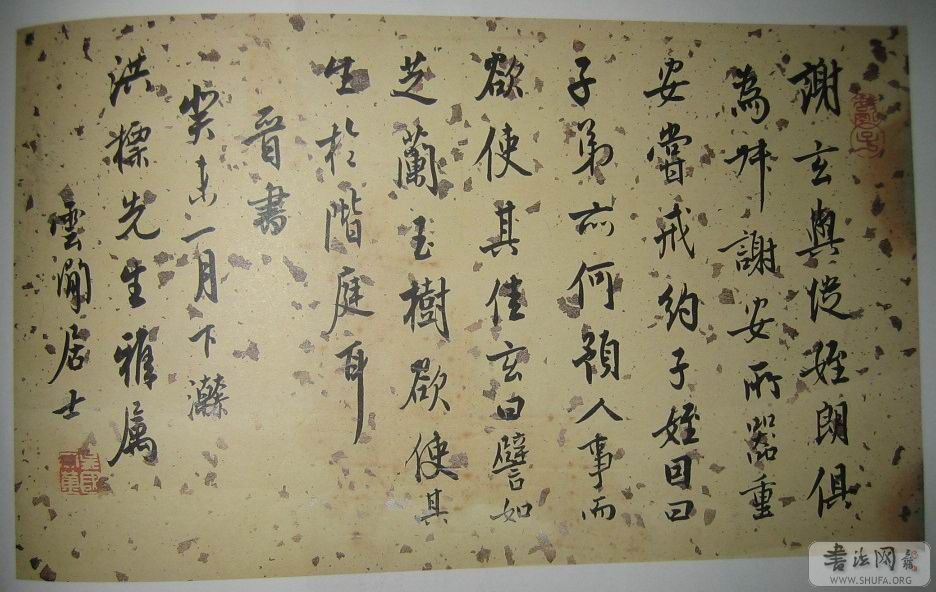 謝玄與從姪朗俱
為叔謝安所器重
安嘗戒約子姪因曰
子弟亦何預人事而
欲使其佳玄曰譬如
芝蘭玉樹欲使其
生於階庭耳
晉書
癸未一月下瀚
洪標先生雅属
雲閒居士
書法网
WWW.SHUFA.ORG